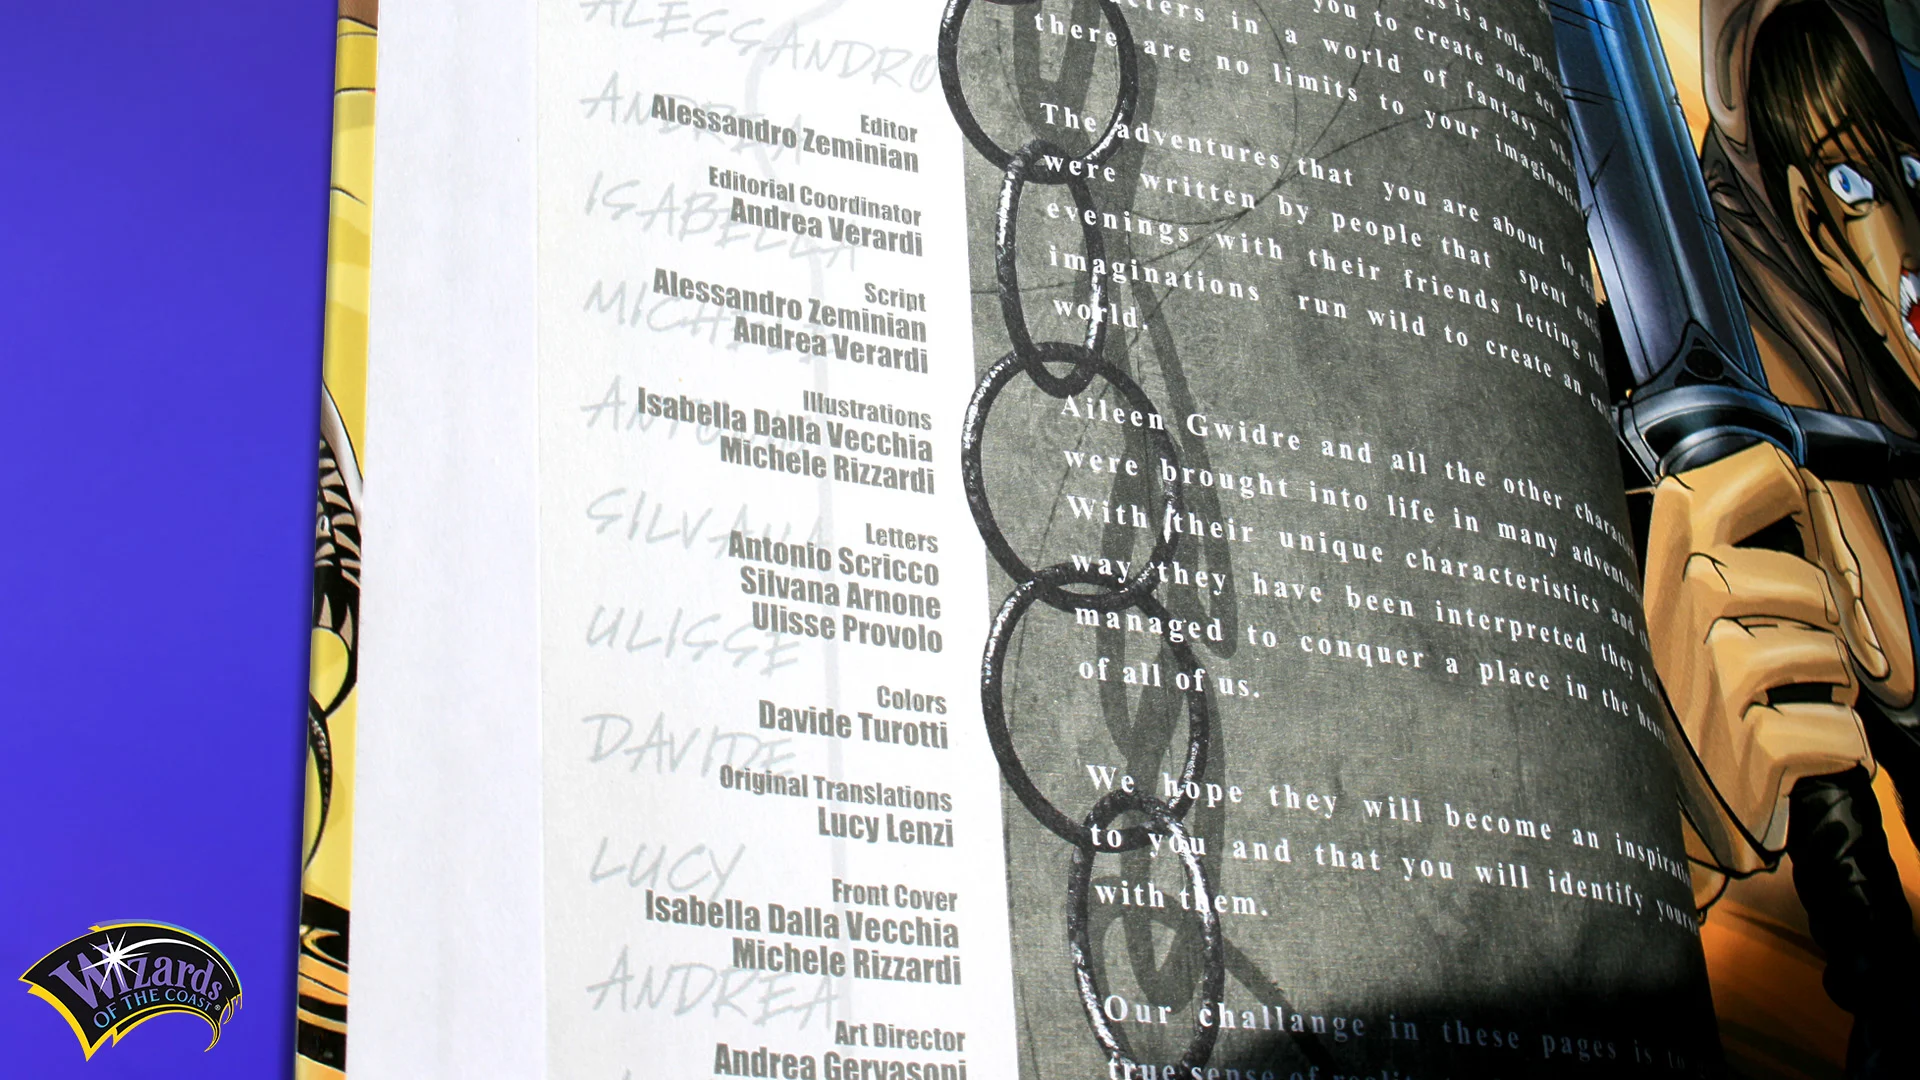 ALESSANDRO
ANDREA
Editor
Alessandro Zeminian
Editorial Coordinator
Andrea Verardi
ISABELLA
Script
Alessandro Zeminian
Andrea Verardi
MICHELE
Illustrations
Isabella Dalla Vecchia
Michele Rizzardi
Letters
Antonio Scricco
Silvana Arnone
Ulisse Provolo
SILVANA
ULISSE
Colors
Davide Turotti
DAVIDE
Original Translations
Lucy Lenzi
LUCY
Front Cover
Isabella Dalla Vecchia
Michele Rizzardi
ANDREA
Art Director
Andrea Gervasoni
is a
you to create and act
in a world of fantasy
there are no limits to your
The adventures that you are about to
were written by people that spent
evenings with their friends letting
imaginations run wild to create an
world.
Aileen Gwidre and all the other
were brought into life in many
With their unique characteristics and
way they have been interpreted they
managed to conquer a place in the
of all of us.
We hope they will become an
to you and that you will identify
with them.
Our challange in these pages is to
true sense of
Wizards
OF THE COAST®